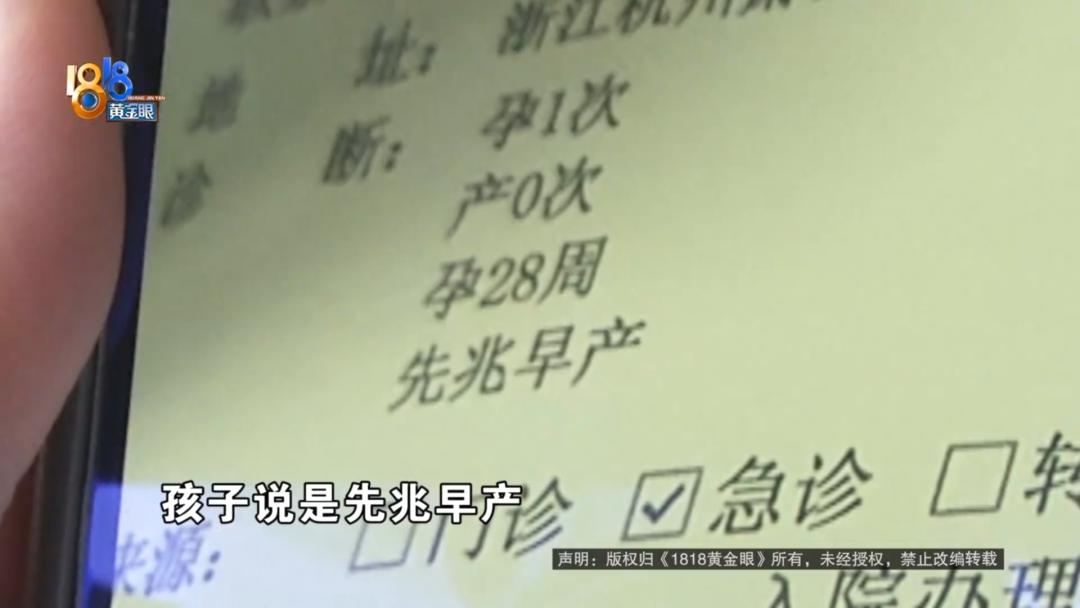 1818
黄金眼
地 址：浙江杭州
诊 断：孕1次
产0次
孕28周
先兆早产
来源：□门诊 ☑急诊 □转
入院办理
孩子说是先兆早产
声明：版权归《1818黄金眼》所有，未经授权，禁止改编转载